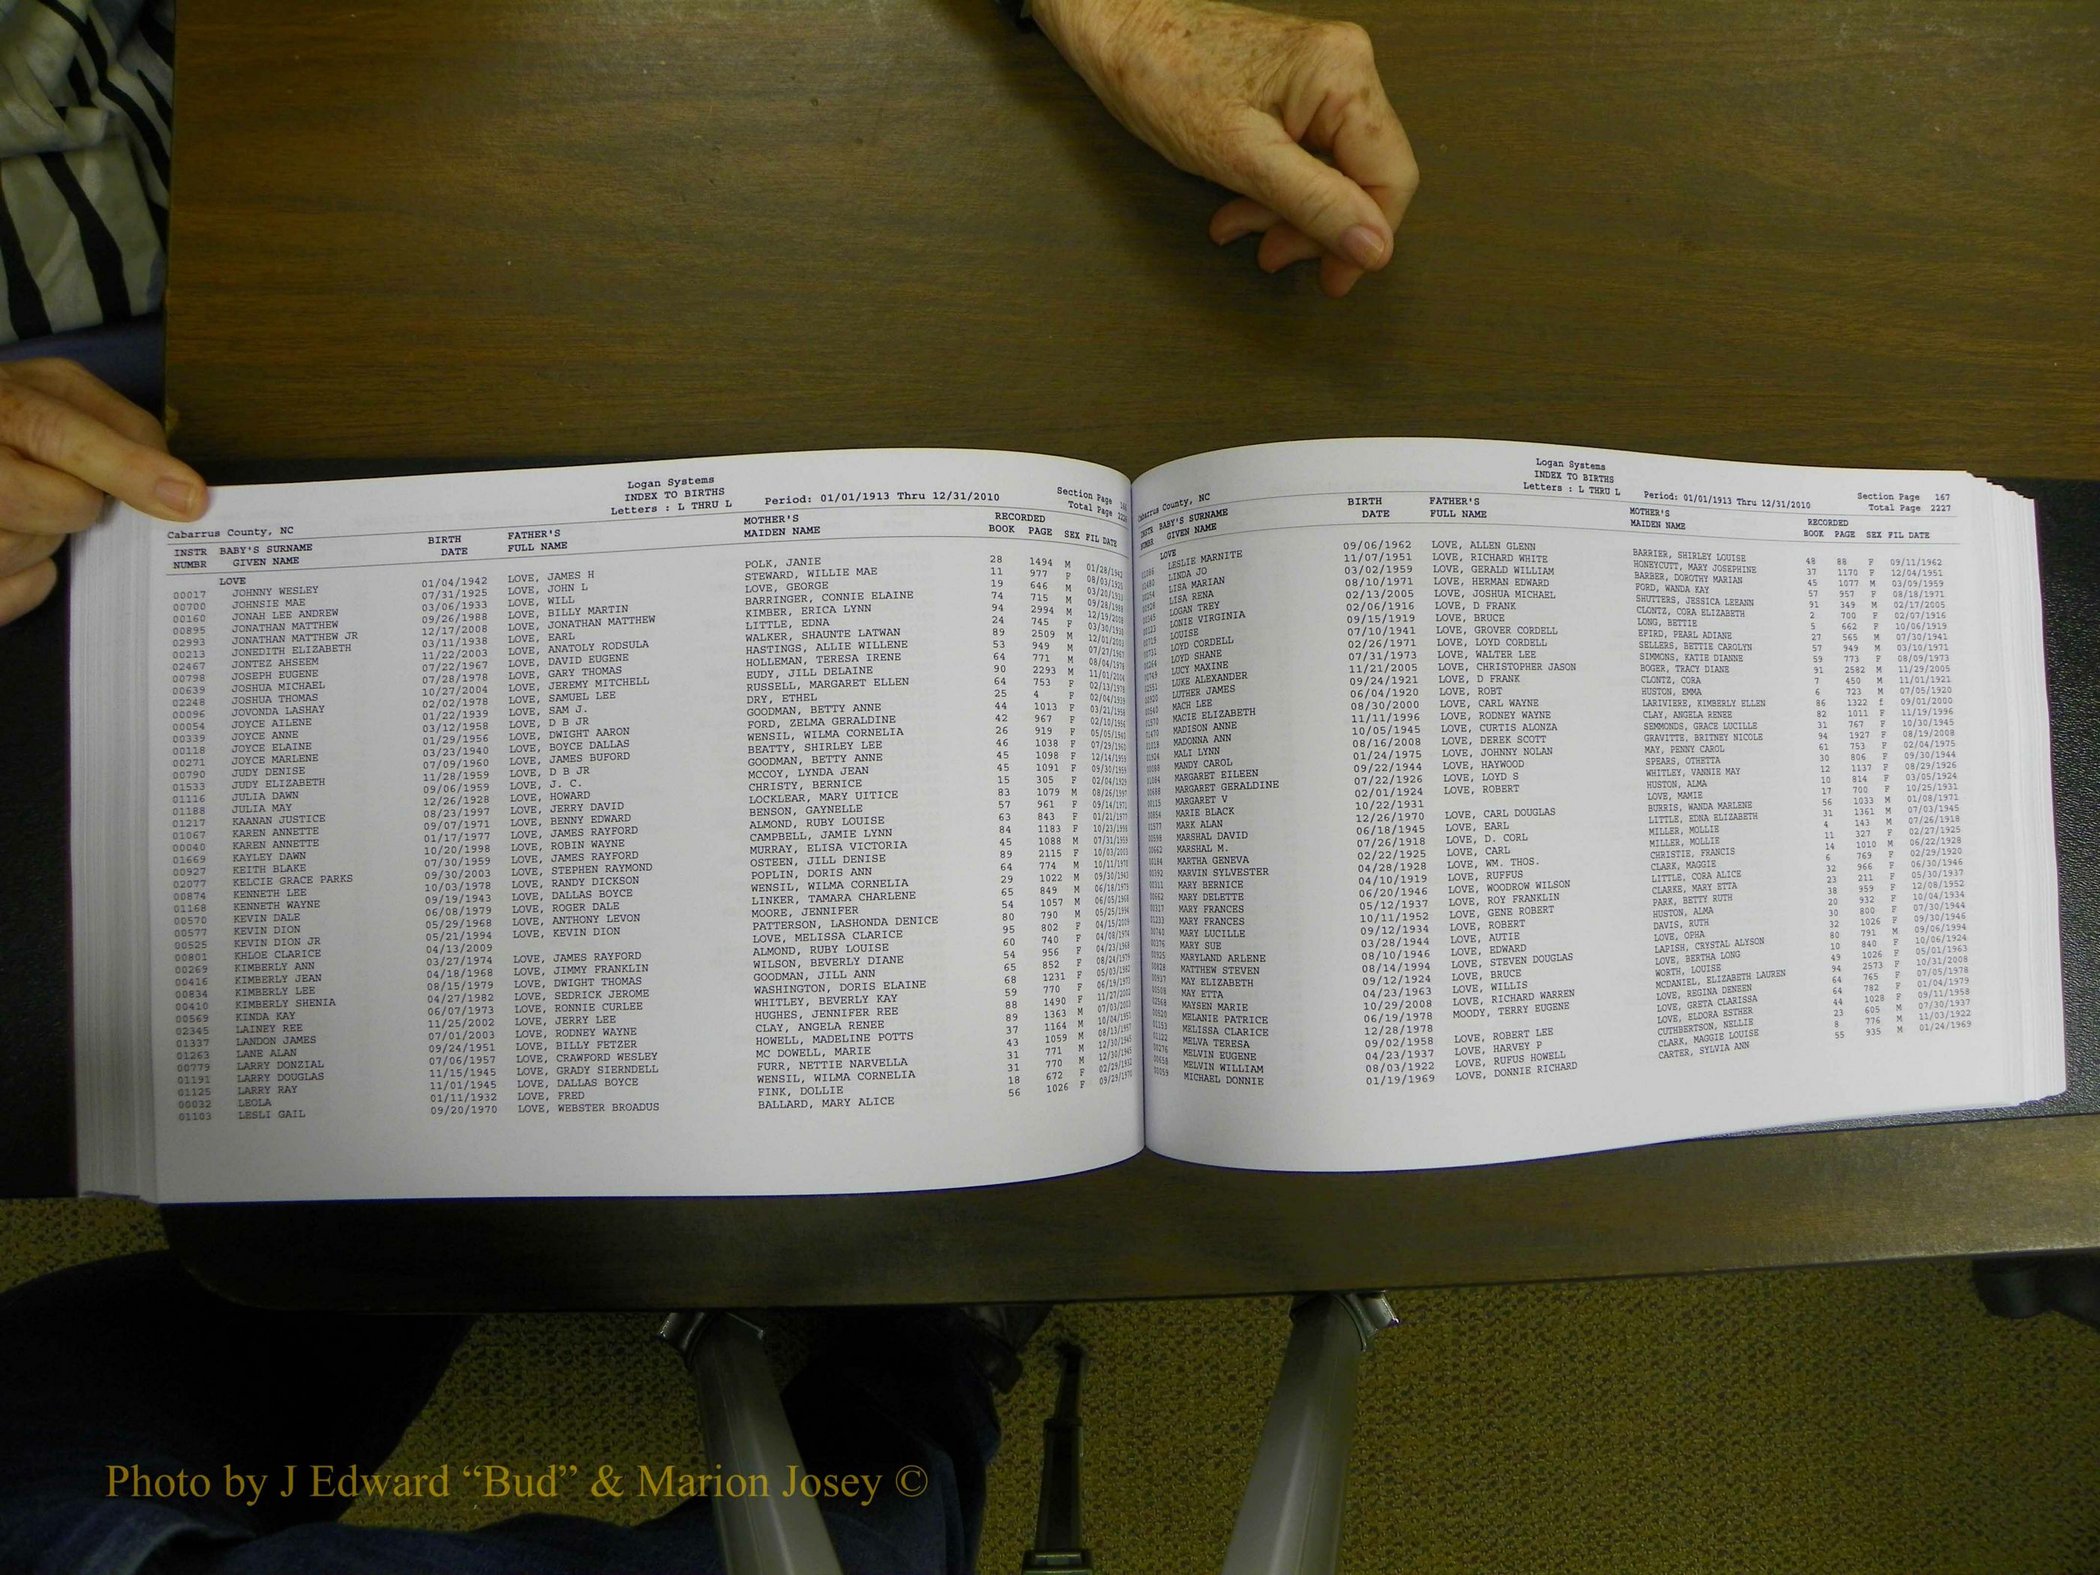 Logan Systems
INDEX TO BIRTHS
Letters : L THRU L Period: 01/01/1913 Thru 12/31/2010
Section Page
Total Page
Cabarrus County, NC
INSTR BABY'S SURNAME BIRTH FATHER'S MOTHER'S RECORDED
NUMBR GIVEN NAME DATE FULL NAME MAIDEN NAME BOOK PAGE SEX FIL DATE
LOVE
00017 JOHNNY WESLEY 01/04/1942 LOVE, JAMES H POLK, JANIE 28 1494 M 01/28/1942
00700 JOHNSIE MAE 07/31/1925 LOVE, JOHN L STEWARD, WILLIE MAE 11 977 F 08/03/1925
00160 JONAH LEE ANDREW 03/06/1933 LOVE, WILL LOVE, GEORGE 19 646 M 03/20/1933
00895 JONATHAN MATTHEW 09/26/1988 LOVE, BILLY MARTIN BARRINGER, CONNIE ELAINE 74 715 M 09/28/1988
02993 JONATHAN MATTHEW JR 12/17/2008 LOVE, JONATHAN MATTHEW KIMBER, ERICA LYNN 94 2994 M 12/19/2008
00213 JONEDITH ELIZABETH 03/11/1938 LOVE, EARL LITTLE, EDNA 24 745 F 03/30/1938
02467 JONTEZ AHSEEM 11/22/2003 LOVE, ANATOLY RODSULA WALKER, SHAUNTE LATWAN 89 2509 M 12/01/2003
00798 JOSEPH EUGENE 07/22/1967 LOVE, DAVID EUGENE HASTINGS, ALLIE WILLENE 53 949 M 07/27/1967
00639 JOSHUA MICHAEL 07/28/1978 LOVE, GARY THOMAS HOLLEMAN, TERESA IRENE 64 771 M 08/04/1978
02248 JOSHUA THOMAS 10/27/2004 LOVE, JEREMY MITCHELL EUDY, JILL DELAINE 90 2293 M 11/01/2004
00096 JOVONDA LASHAY 02/02/1978 LOVE, SAMUEL LEE RUSSELL, MARGARET ELLEN 64 753 F 02/13/1978
00054 JOYCE AILENE 01/22/1939 LOVE, SAM J. DRY, ETHEL 25 4 F 02/04/1939
00339 JOYCE ANNE 03/12/1958 LOVE, D B JR GOODMAN, BETTY ANNE 44 1013 F 03/21/1958
00118 JOYCE ELAINE 01/29/1956 LOVE, DWIGHT AARON FORD, ZELMA GERALDINE 42 967 F 02/10/1956
00271 JOYCE MARLENE 03/23/1940 LOVE, BOYCE DALLAS WENSIL, WILMA CORNELIA 26 919 F 05/05/1940
00790 JUDY DENISE 07/09/1960 LOVE, JAMES BUFORD BEATTY, SHIRLEY LEE 46 1038 F 07/29/1960
01533 JUDY ELIZABETH 11/28/1959 LOVE, D B JR GOODMAN, BETTY ANNE 45 1098 F 12/14/1959
01116 JULIA DAWN 09/06/1959 LOVE, J. C. MCCOY, LYNDA JEAN 45 1091 F 09/30/1959
01188 JULIA MAY 12/26/1928 LOVE, HOWARD CHRISTY, BERNICE 15 305 F 02/04/1929
01217 KAANAN JUSTICE 08/23/1997 LOVE, JERRY DAVID LOCKLEAR, MARY UITICE 83 1079 M 08/26/1997
01067 KAREN ANNETTE 09/07/1971 LOVE, BENNY EDWARD BENSON, GAYNELLE 57 961 F 09/14/1971
00040 KAREN ANNETTE 01/17/1977 LOVE, JAMES RAYFORD ALMOND, RUBY LOUISE 63 843 F 01/21/1977
01669 KAYLEY DAWN 10/20/1998 LOVE, ROBIN WAYNE CAMPBELL, JAMIE LYNN 84 1183 F 10/23/1998
00927 KEITH BLAKE 07/30/1959 LOVE, JAMES RAYFORD MURRAY, ELISA VICTORIA 45 1088 M 07/31/1959
02077 KELCIE GRACE PARKS 09/30/2003 LOVE, STEPHEN RAYMOND OSTEEN, JILL DENISE 89 2115 F 10/03/2003
00874 KENNETH LEE 10/03/1978 LOVE, RANDY DICKSON POPLIN, DORIS ANN 64 774 M 10/11/1978
01168 KENNETH WAYNE 09/19/1943 LOVE, DALLAS BOYCE WENSIL, WILMA CORNELIA 29 1022 M 09/30/1943
00570 KEVIN DALE 06/08/1979 LOVE, ROGER DALE LINKER, TAMARA CHARLENE 65 849 M 06/18/1979
00577 KEVIN DION 05/29/1968 LOVE, ANTHONY LEVON MOORE, JENNIFER 54 1057 M 06/05/1968
00525 KEVIN DION JR 05/21/1994 LOVE, KEVIN DION PATTERSON, LASHONDA DENICE 80 790 M 05/25/1994
00801 KHLOE CLARICE 04/13/2009 LOVE, MELISSA CLARICE 95 802 F 04/15/2009
00269 KIMBERLY ANN 03/27/1974 LOVE, JAMES RAYFORD ALMOND, RUBY LOUISE 60 740 F 04/08/1974
00416 KIMBERLY JEAN 04/18/1968 LOVE, JIMMY FRANKLIN WILSON, BEVERLY DIANE 54 956 F 04/23/1968
00834 KIMBERLY LEE 08/15/1979 LOVE, DWIGHT THOMAS GOODMAN, JILL ANN 65 852 F 08/24/1979
00410 KIMBERLY SHENIA 04/27/1982 LOVE, SEDRICK JEROME WASHINGTON, DORIS ELAINE 68 1231 F 05/03/1982
00569 KINDA KAY 06/07/1973 LOVE, RONNIE CURLEE WHITLEY, BEVERLY KAY 59 770 F 06/19/1973
02345 LAINEY REE 11/25/2002 LOVE, JERRY LEE HUGHES, JENNIFER REE 88 1490 F 11/27/2002
01337 LANDON JAMES 07/01/2003 LOVE, RODNEY WAYNE CLAY, ANGELA RENEE 89 1363 M 07/03/2003
01263 LANE ALAN 09/24/1951 LOVE, BILLY FETZER HOWELL, MADELINE POTTS 37 1164 M 10/04/1951
00779 LARRY DONZIAL 07/06/1957 LOVE, CRAWFORD WESLEY MC DOWELL, MARIE 43 1059 M 08/13/1957
01191 LARRY DOUGLAS 11/15/1945 LOVE, GRADY SIERNDELL FURR, NETTIE NARVELLA 31 771 M 12/30/1945
01125 LARRY RAY 11/01/1945 LOVE, DALLAS BOYCE WENSIL, WILMA CORNELIA 31 770 M 12/30/1945
00032 LEOLA 01/11/1932 LOVE, FRED FINK, DOLLIE 18 672 F 02/29/1932
01103 LESLI GAIL 09/20/1970 LOVE, WEBSTER BROADUS BALLARD, MARY ALICE 56 1026 F 09/29/1970
Logan Systems
INDEX TO BIRTHS
Letters : L THRU L Period: 01/01/1913 Thru 12/31/2010
Section Page 167
Total Page 2227
Cabarrus County, NC
INSTR BABY'S SURNAME BIRTH FATHER'S MOTHER'S RECORDED
NUMBR GIVEN NAME DATE FULL NAME MAIDEN NAME BOOK PAGE SEX FIL DATE
LOVE
LESLIE MARNITE 09/06/1962 LOVE, ALLEN GLENN BARRIER, SHIRLEY LOUISE 48 88 F 09/11/1962
LINDA JO 11/07/1951 LOVE, RICHARD WHITE HONEYCUTT, MARY JOSEPHINE 37 1170 F 12/04/1951
LISA MARIAN 03/02/1959 LOVE, GERALD WILLIAM BARBER, DOROTHY MARIAN 45 1077 M 03/09/1959
LISA RENA 08/10/1971 LOVE, HERMAN EDWARD FORD, WANDA KAY 57 957 F 08/18/1971
LOGAN TREY 02/13/2005 LOVE, JOSHUA MICHAEL SHUTTERS, JESSICA LEEANN 91 349 M 02/17/2005
LONIE VIRGINIA 02/06/1916 LOVE, D FRANK CLONTZ, CORA ELIZABETH 2 700 F 02/07/1916
LOUISE 09/15/1919 LOVE, BRUCE LONG, BETTIE 5 662 F 10/06/1919
LOYD CORDELL 07/10/1941 LOVE, GROVER CORDELL EFIRD, PEARL ADIANE 27 565 M 07/30/1941
LOYD SHANE 02/26/1971 LOVE, LOYD CORDELL SELLERS, BETTIE CAROLYN 57 949 M 03/10/1971
LUCY MAXINE 07/31/1973 LOVE, WALTER LEE SIMMONS, KATIE DIANNE 59 773 F 08/09/1973
LUKE ALEXANDER 11/21/2005 LOVE, CHRISTOPHER JASON BOGER, TRACY DIANE 91 2582 M 11/29/2005
LUTHER JAMES 09/24/1921 LOVE, D FRANK CLONTZ, CORA 7 450 M 11/01/1921
MACH LEE 06/04/1920 LOVE, ROBT HUSTON, EMMA 6 723 M 07/05/1920
MACIE ELIZABETH 08/30/2000 LOVE, CARL WAYNE LARIVIERE, KIMBERLY ELLEN 86 1322 f 09/01/2000
MADISON ANNE 11/11/1996 LOVE, RODNEY WAYNE CLAY, ANGELA RENEE 82 1011 F 11/19/1996
MADONNA ANN 10/05/1945 LOVE, CURTIS ALONZA SEMMONDS, GRACE LUCILLE 31 767 F 10/30/1945
MALI LYNN 08/16/2008 LOVE, DEREK SCOTT GRAVITTE, BRITNEY NICOLE 94 1927 F 08/19/2008
MANDY CAROL 01/24/1975 LOVE, JOHNNY NOLAN MAY, PENNY CAROL 61 753 F 02/04/1975
MARGARET EILEEN 09/22/1944 LOVE, HAYWOOD SPEARS, OTHETTA 30 806 F 09/30/1944
MARGARET GERALDINE 07/22/1926 LOVE, LOYD S WHITLEY, VANNIE MAY 12 1137 F 08/29/1926
MARGARET V 02/01/1924 LOVE, ROBERT HUSTON, ALMA 10 814 F 03/05/1924
MARIE BLACK 10/22/1931 LOVE, MAMIE 17 700 F 10/25/1931
MARK ALAN 12/26/1970 LOVE, CARL DOUGLAS BURRIS, WANDA MARLENE 56 1033 M 01/08/1971
MARSHAL DAVID 06/18/1945 LOVE, EARL LITTLE, EDNA ELIZABETH 31 1361 M 07/03/1945
MARSHAL M. 07/26/1918 LOVE, D. CORL MILLER, MOLLIE 4 143 M 07/26/1918
MARTHA GENEVA 02/22/1925 LOVE, CARL MILLER, MOLLIE 11 327 F 02/27/1925
MARVIN SYLVESTER 04/28/1928 LOVE, WM. THOS. CHRISTIE, FRANCIS 14 1010 M 06/22/1928
MARY BERNICE 04/10/1919 LOVE, RUFFUS CLARK, MAGGIE 6 769 F 02/29/1920
MARY DELETTE 06/20/1946 LOVE, WOODROW WILSON LITTLE, CORA ALICE 32 966 F 06/30/1946
MARY FRANCES 05/12/1937 LOVE, ROY FRANKLIN CLARKE, MARY ETTA 23 211 F 05/30/1937
MARY FRANCES 10/11/1952 LOVE, GENE ROBERT PARK, BETTY RUTH 38 959 F 12/08/1952
MARY LUCILLE 09/12/1934 LOVE, ROBERT HUSTON, ALMA 20 932 F 10/04/1934
MARY SUE 03/28/1944 LOVE, AUTIE DAVIS, RUTH 30 800 F 07/30/1944
MARYLAND ARLENE 08/10/1946 LOVE, EDWARD LOVE, OPHA 32 1026 F 09/30/1946
MATTHEW STEVEN 08/14/1994 LOVE, STEVEN DOUGLAS LAPISH, CRYSTAL ALYSON 80 791 M 09/06/1994
MAY ELIZABETH 09/12/1924 LOVE, BRUCE LOVE, BERTHA LONG 10 840 F 10/06/1924
MAY ETTA 04/23/1963 LOVE, WILLIS WORTH, LOUISE 49 1026 F 05/01/1963
MAYSEN MARIE 10/29/2008 LOVE, RICHARD WARREN MCDANIEL, ELIZABETH LAUREN 94 2573 F 10/31/2008
MELANIE PATRICE 06/19/1978 MOODY, TERRY EUGENE LOVE, REGINA DENEEN 64 765 F 07/05/1978
MELISSA CLARICE 12/28/1978 LOVE, GRETA CLARISSA 64 782 F 01/04/1979
MELVA TERESA 09/02/1958 LOVE, ROBERT LEE LOVE, ELDORA ESTHER 44 1028 F 09/11/1958
MELVIN EUGENE 04/23/1937 LOVE, HARVEY P CUTHBERTSON, NELLIE 23 605 M 07/30/1937
MELVIN WILLIAM 08/03/1922 LOVE, RUFUS HOWELL CLARK, MAGGIE LOUISE 8 776 M 11/03/1922
MICHAEL DONNIE 01/19/1969 LOVE, DONNIE RICHARD CARTER, SYLVIA ANN 55 935 M 01/24/1969
Photo by J Edward “Bud” & Marion Josey ©